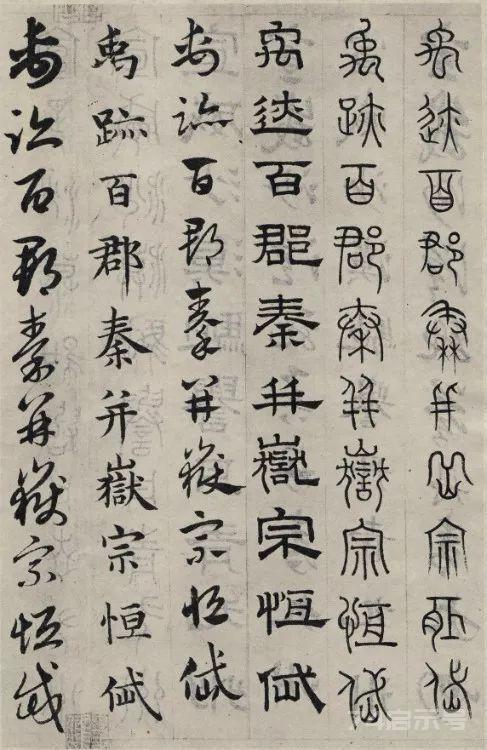 禹迹百郡秦并岳宗恒岱
禹跡百郡秦并嶽宗恒岱
禹迹百郡秦并嶽宗恒岱
禹跡百郡秦并嶽宗恒岱
禹跡百郡秦并嶽宗恒岱
禹跡百郡秦并嶽宗恒岱
启示号